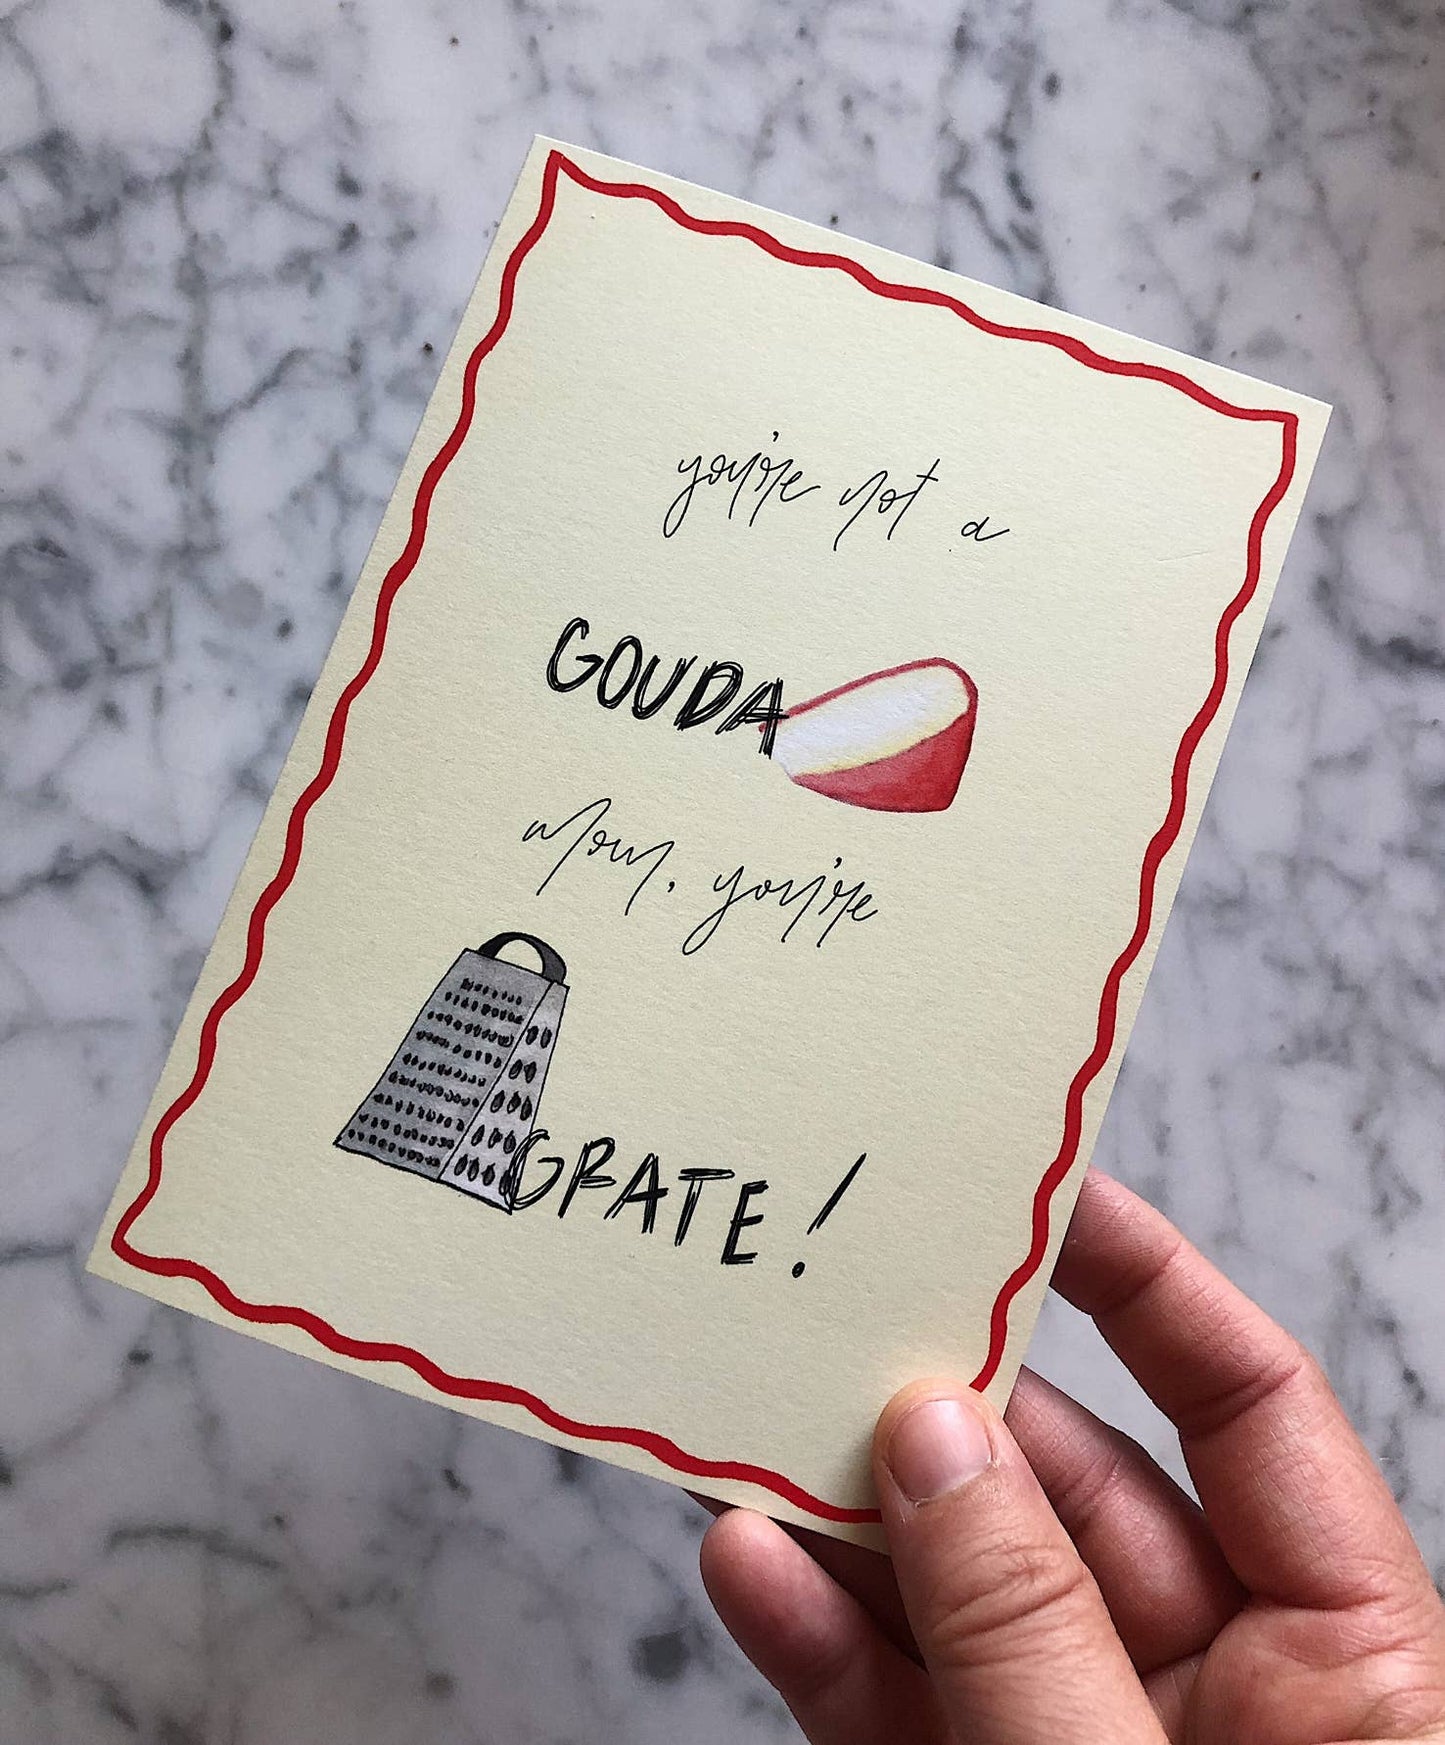 you're not a
GOUDA
Mom, you're
GRATE!